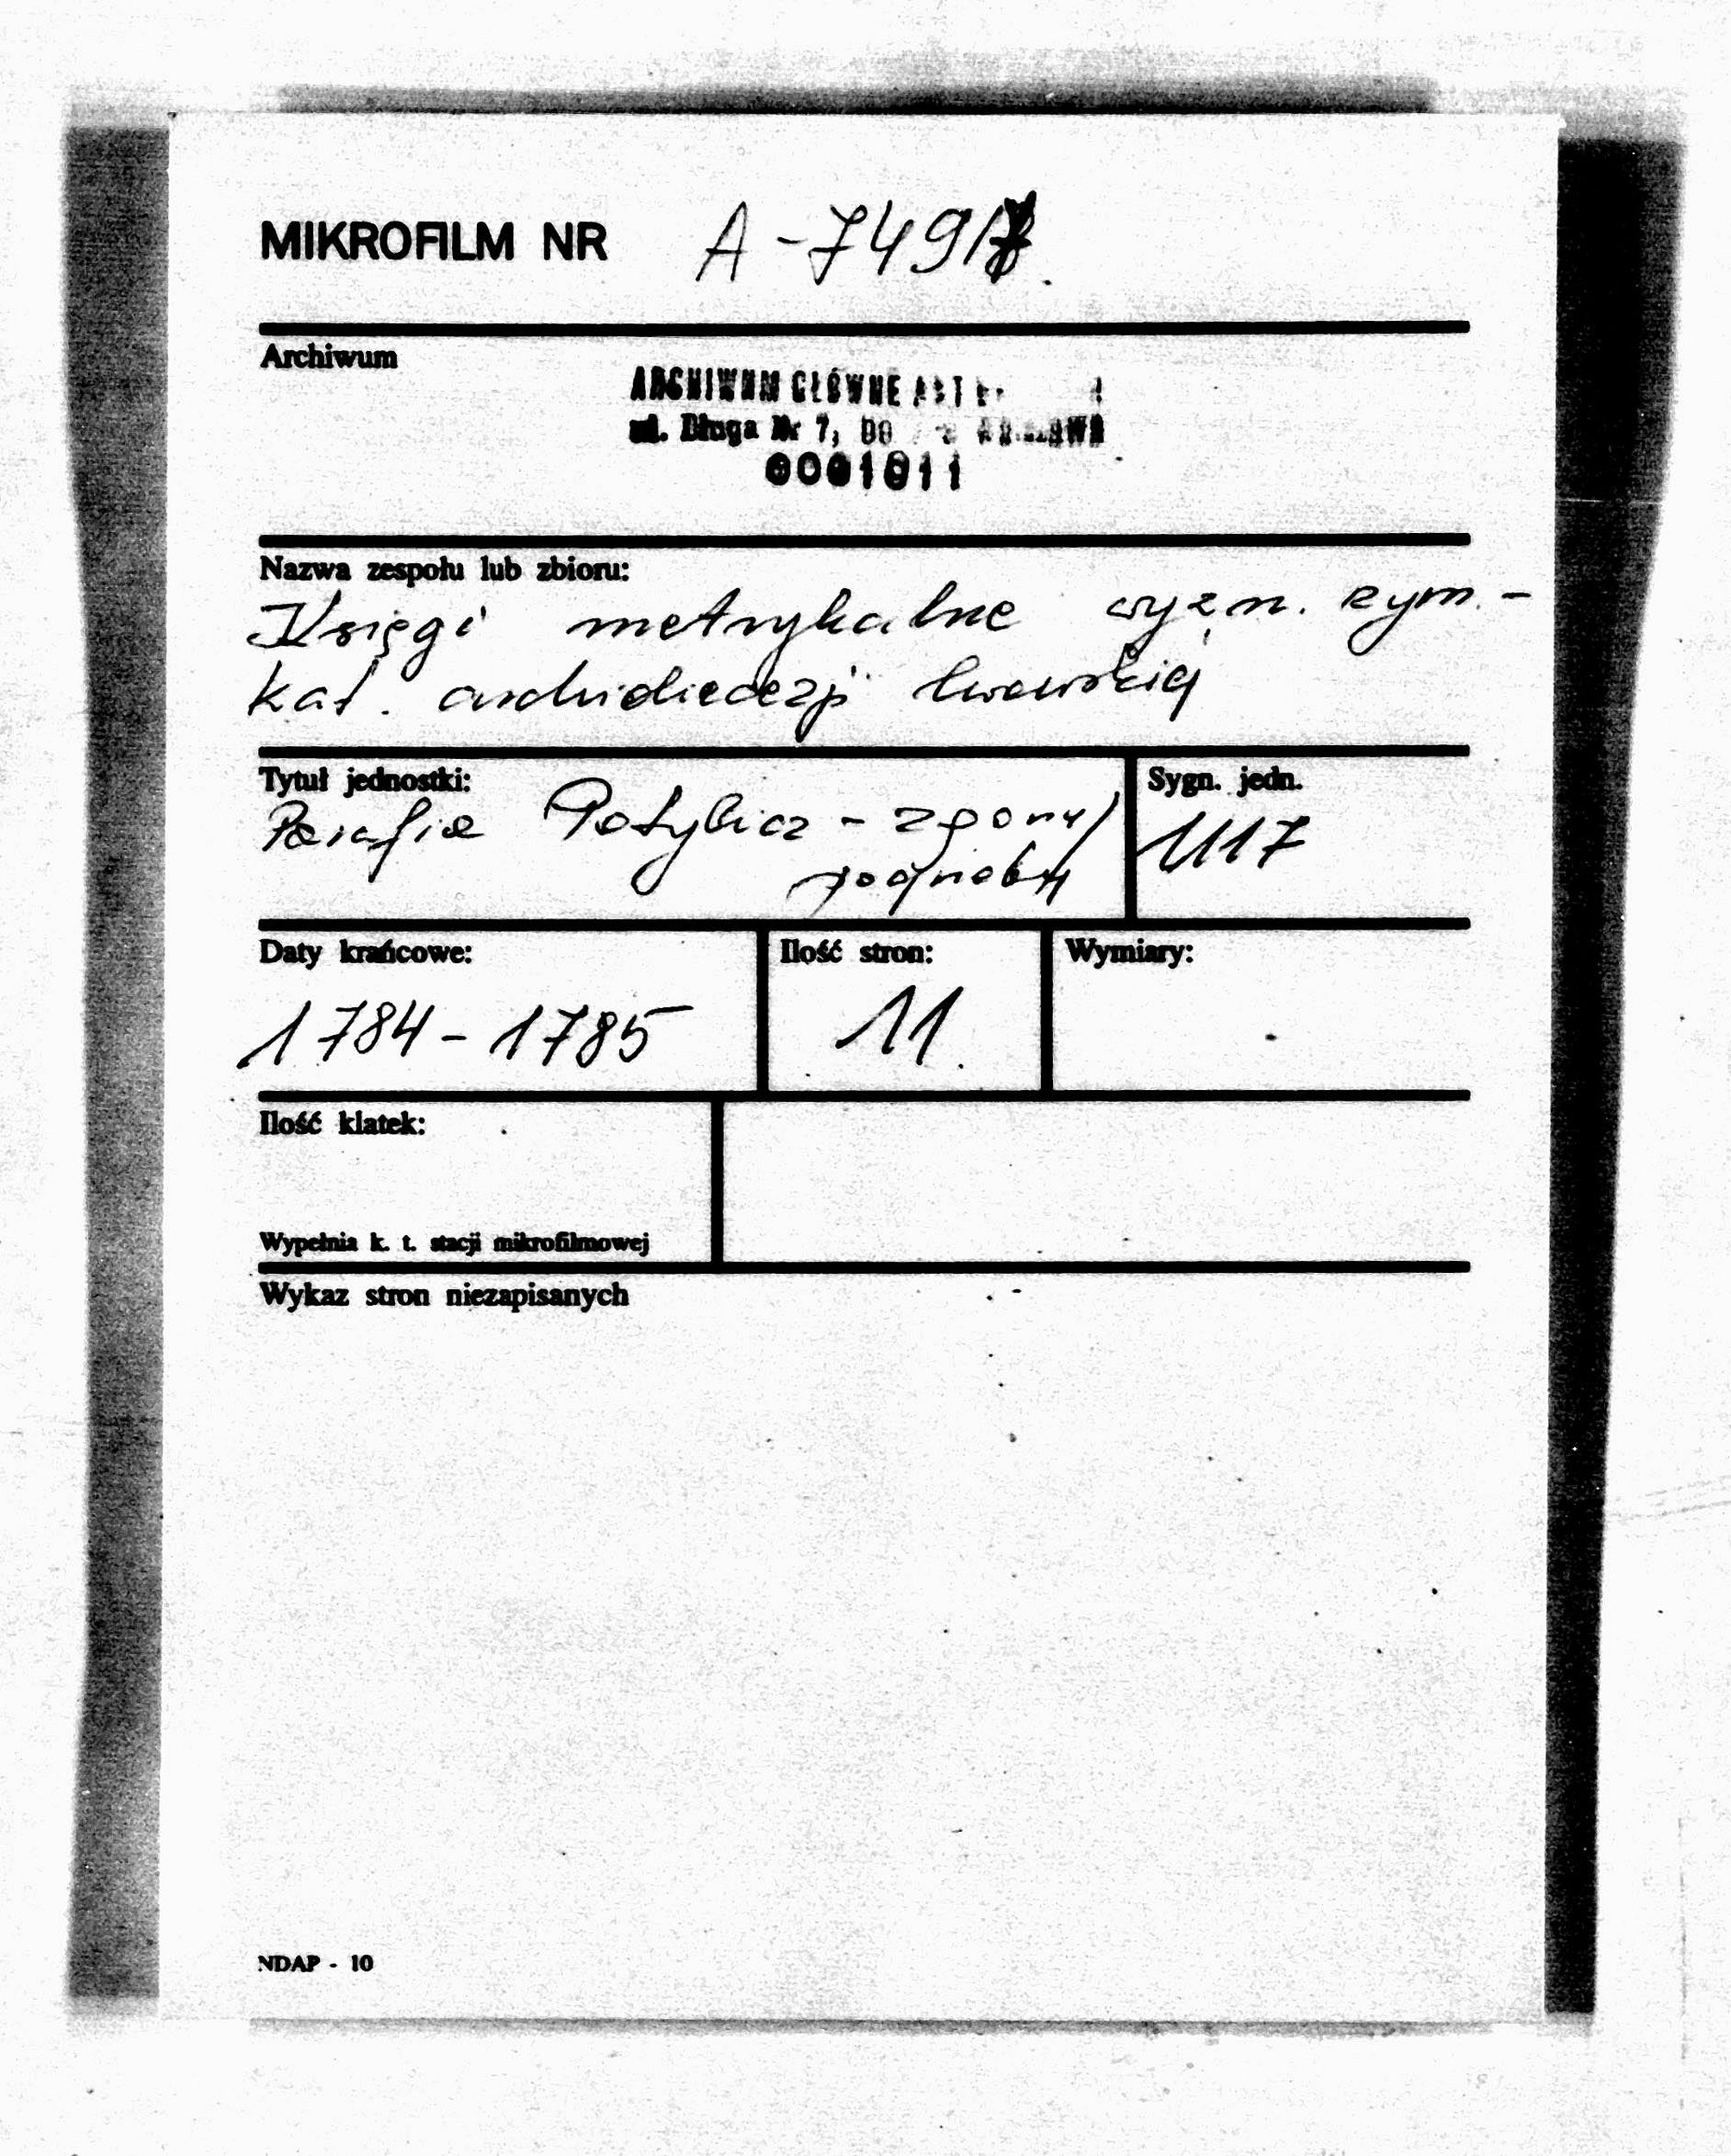 MIKROFILM NR A-7491
Archiwum
ARCHIWUM GŁÓWNE AKT
ul. Długa Nr 7, 00
0001011
Nazwa zespołu lub zbioru:
Księgi metrykalne wyzn. rzym.-
kat. archidiecezji lwowskiej
Tytuł jednostki:
Parafia Potylicz - zgony
Sygn. jedn.
1117
Daty krańcowe:
1784-1785
Ilość stron:
11
Wymiary:
-
Ilość klatek:
Wypełnia k. t. stacji mikrofilmowej
Wykaz stron niezapisanych
NDAP - 10